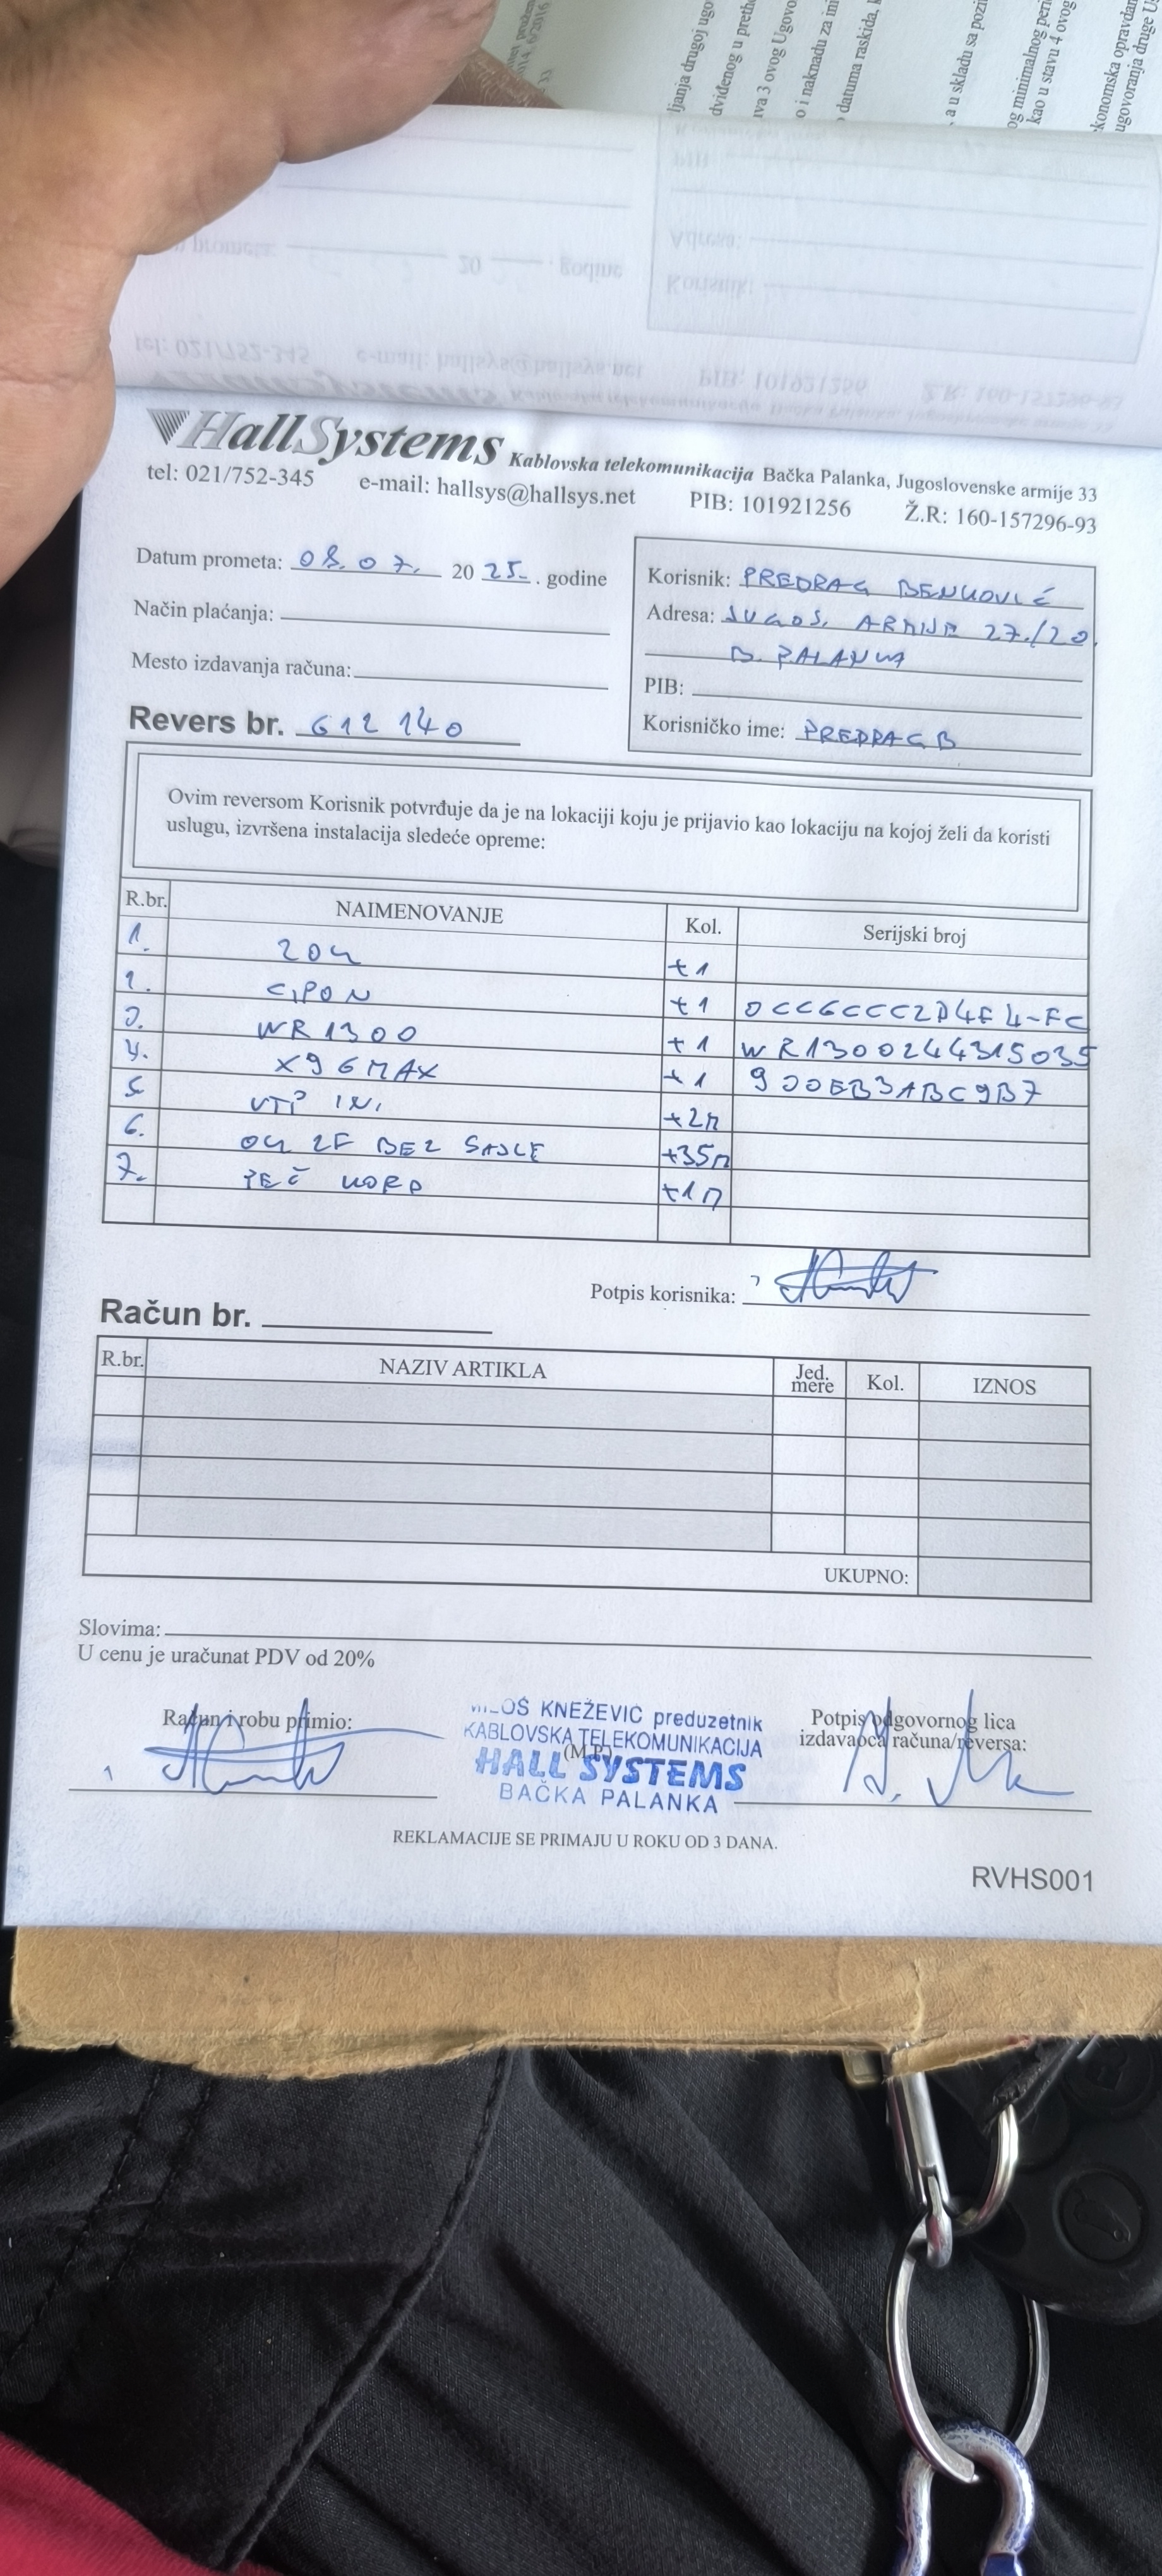 ljanja drugoj ugo
dviđenog u preth
iva 3 ovog Ugovo
o i naknadu za mi
datuma raskida,
, a u skladu sa pozi
og minimalnog peri
kao u stavu 4 ovog
konomska opravdan
ugovoranja druge U
HallSystems Kablovska telekomunikacija Bačka Palanka, Jugoslovenske armije 33
tel: 021/752-345 e-mail: hallsys@hallsys.net PIB: 101921256 Ž.R: 160-157296-93
Datum prometa: 08.07. 2025. godine
Način plaćanja:
Mesto izdavanja računa:
Revers br. 612140
Korisnik: PREDRAG BENKOVIĆ
Adresa: JUGOS. ARMIJE 27./20.
B. PALANKA
PIB:
Korisničko ime: PREDRAGB
Ovim reversom Korisnik potvrđuje da je na lokaciji koju je prijavio kao lokaciju na kojoj želi da koristi
uslugu, izvršena instalacija sledeće opreme:
R.br. NAIMENOVANJE Kol. Serijski broj
1. ZOK +1
2. GPON +1 0CC6CCC2D4F4-FC
3. WR1300 +1 WR1300244315035
4. X96MAX +1 900EB3ABC9B7
5. UTP IN. +2M
6. OK 2F BEZ SAJLE +35M
7. PEČ KORD +1M
Potpis korisnika:
Račun br.
R.br. NAZIV ARTIKLA Jed. mere Kol. IZNOS
UKUPNO:
Slovima:
U cenu je uračunat PDV od 20%
Račun i robu primio:
MILOŠ KNEŽEVIĆ preduzetnik
KABLOVSKA TELEKOMUNIKACIJA
(M.P.)
HALL SYSTEMS
BAČKA PALANKA
Potpis odgovornog lica
izdavaoca računa/reversa:
REKLAMACIJE SE PRIMAJU U ROKU OD 3 DANA.
RVHS001